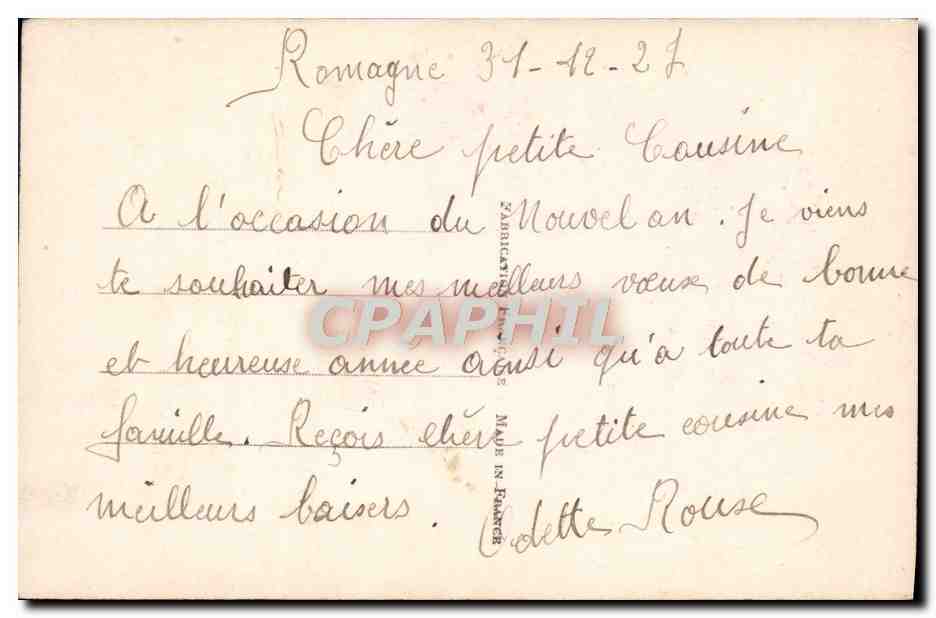 Romagne 31-12-27
Chère petite Cousine
A l'occasion du Nouvel an. Je viens
te souhaiter mes meilleurs voeux de bonne
et heureuse année ainsi qu'a toute ta
famille. Reçois chère petite cousine mes
meilleurs baisers.
Odette Rouse
FABRICATION FRANÇAISE MADE IN FRANCE
CPAPHIL